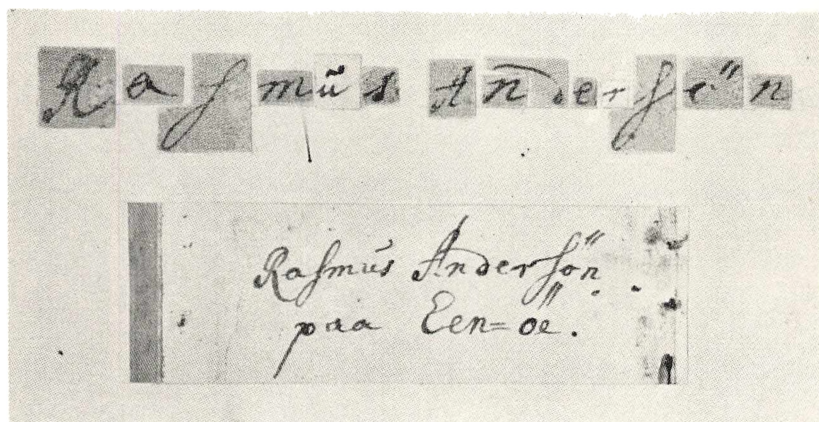 Raſmũs Anderſën
Raſmús Anderſön
paa Een=öe.